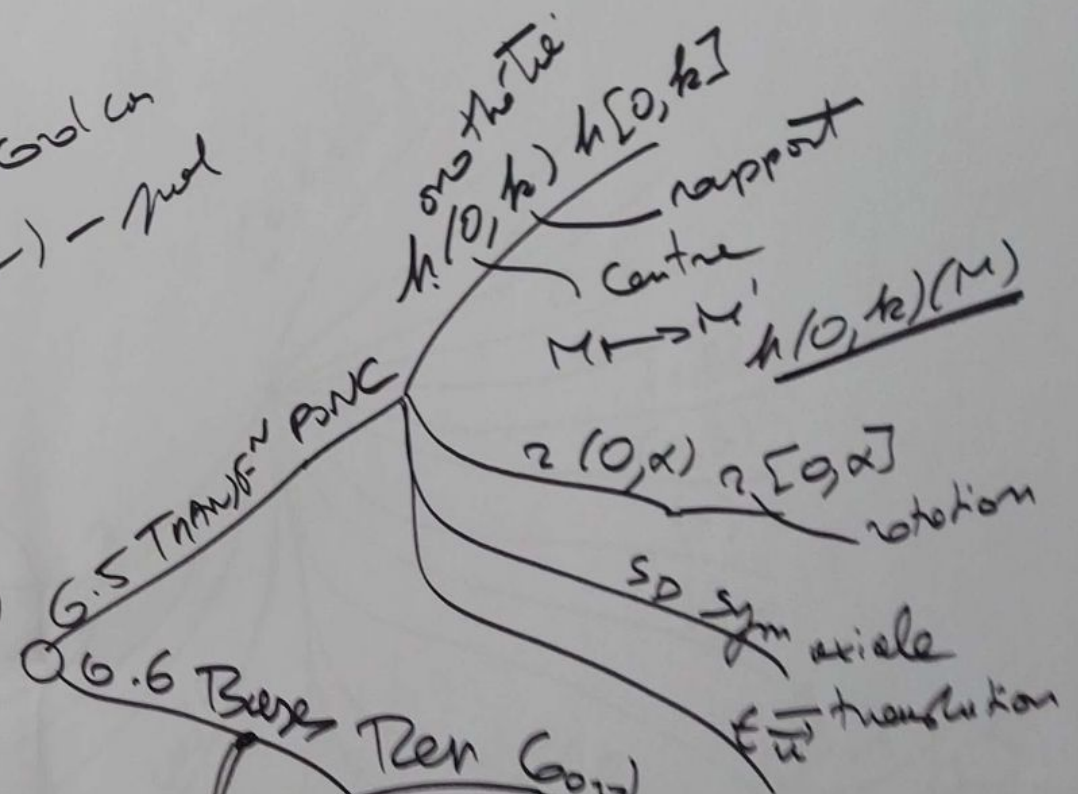 omothétie
h(O, k) h[O, k]
rapport
Centre
M ↦ M' h(O, k)(M)
6.5 TRANSFᴺ PONC
r (O, α) r [O, α]
rotation
S_D Sym axiale
t_u⃗ translation
6.6 Bases Rep